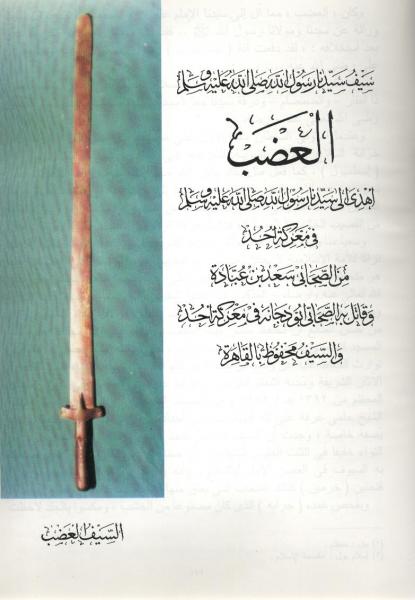 سيف سيدنا رسول الله صلى الله عليه وسلم
العضب
أهدى إلى سيدنا رسول الله صلى الله عليه وسلم
في معركة أحد
من الصحابي سعد بن عبادة
وقاتل به الصحابي أبو دجانة في معركة أحد
والسيف محفوظ بالقاهرة
السيف العضب